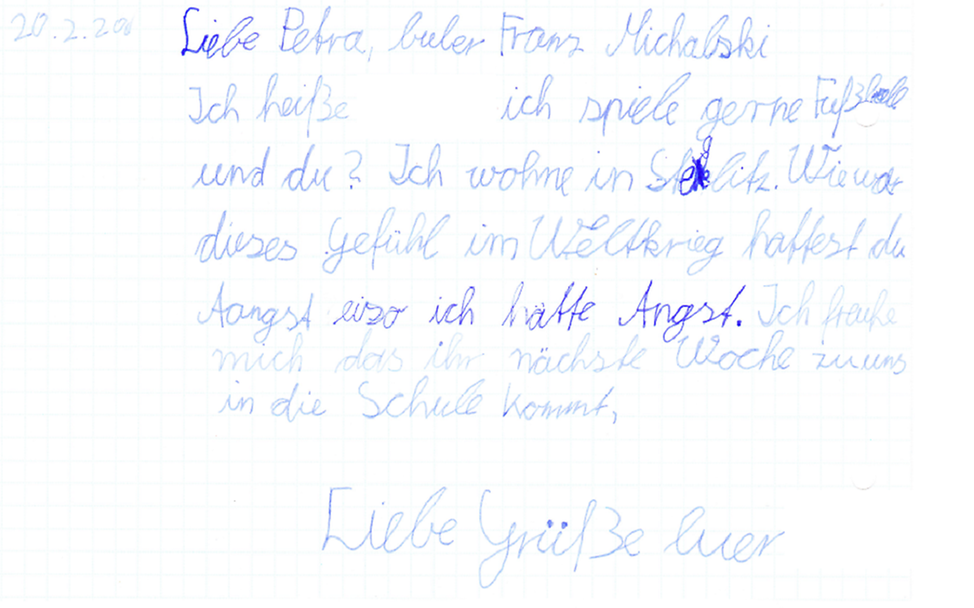 20.2.20 Liebe Petra, buler Franz Michalski
Ich heiße ich spiele gerne Fußball
und du? Ich wohne in Steglitz. Wie war
dieses gefühl im Weltkrieg hattest du
Aangst eiso ich hätte Angst. Ich frauhe
mich das ihr nächste Woche zu uns
in die Schule kommt,
Liebe Grüße luer